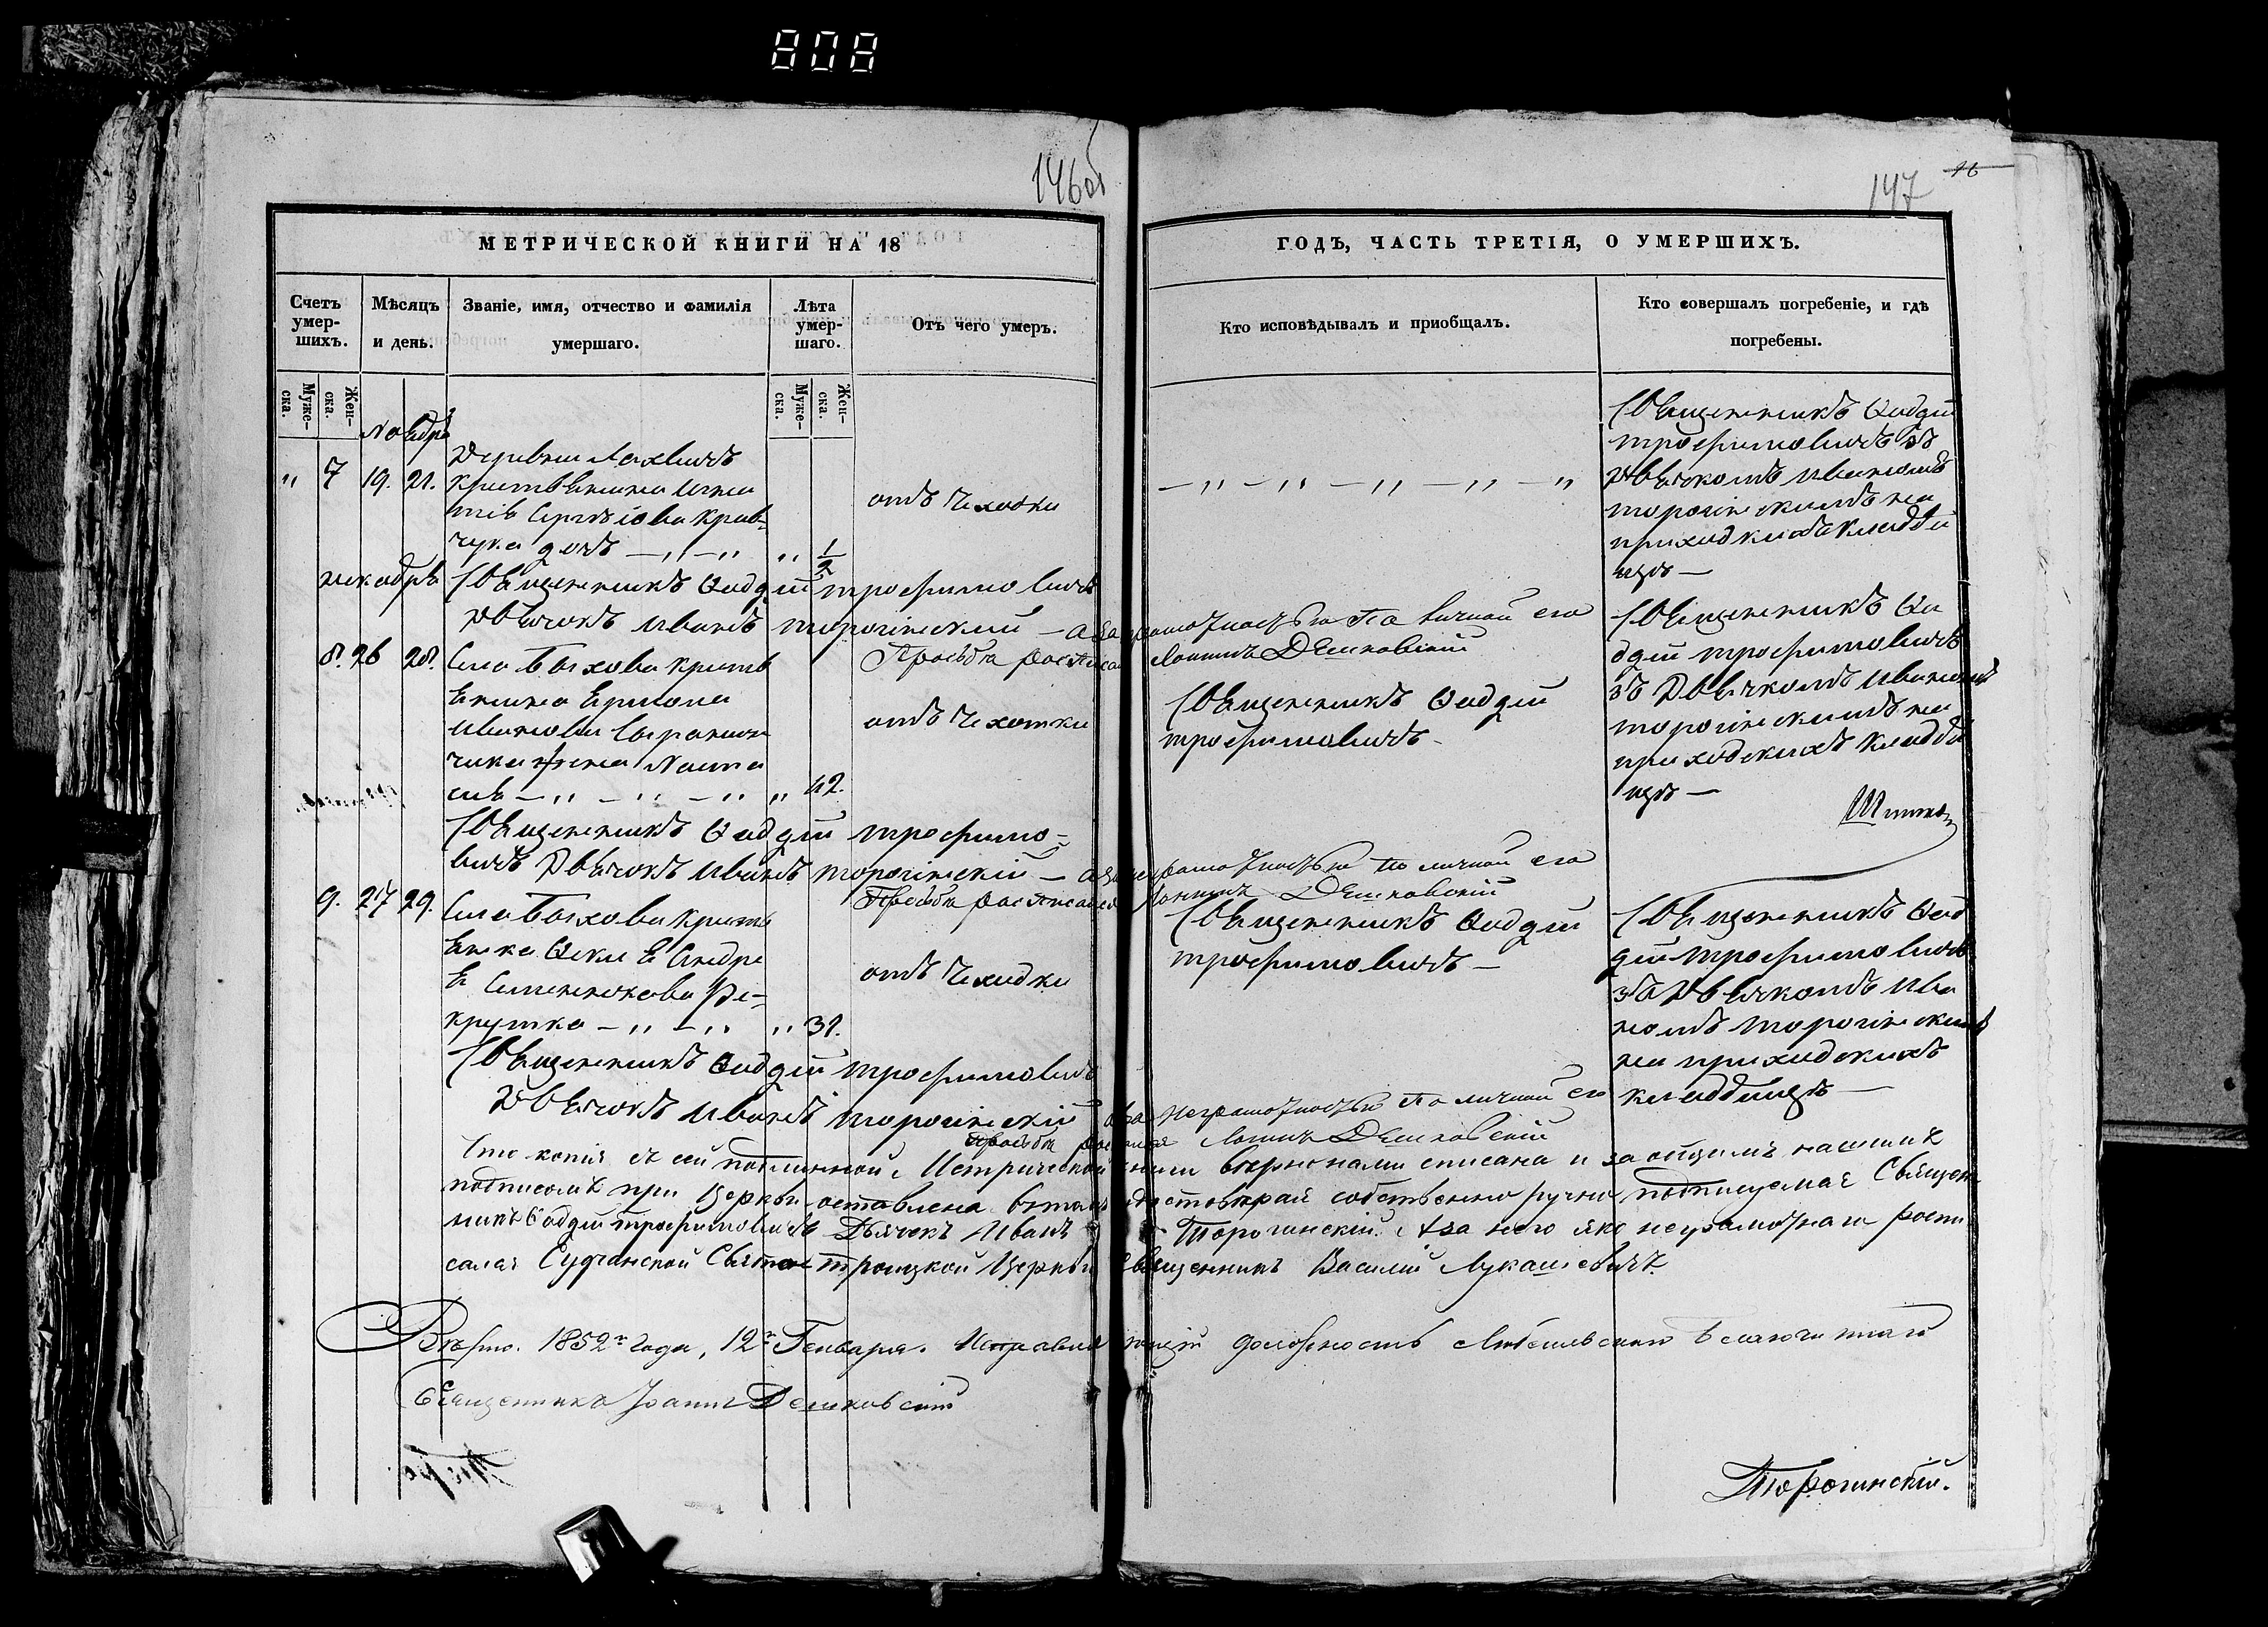 808
146об
147
16
МЕТРИЧЕСКОЙ КНИГИ НА 18
ГОДЪ, ЧАСТЬ ТРЕТІЯ, О УМЕРШИХЪ.
Счетъ умер-шихъ.
Мѣсяцъ и день.
Званіе, имя, отчество и фамилія умершаго.
Лѣта умер-шаго.
Отъ чего умеръ.
Кто исповѣдывалъ и приобщалъ.
Кто совершалъ погребеніе, и гдѣ погребены.
Муже-ска.
Жен-ска.
Муже-ска.
Жен-ска.
Ноябрь
" 7 19. 21.
Деревни Лахвичъ
крестьянина Игна
тія Сергѣіова Крав-
чука дочь — " — " " 1/2
отъ чахотки
— " — " — " — " — "
Священникъ Овдій
трофимовичъ зъ
дьячкомъ иваномъ
торогінскимъ на
приходскихъ кладби
щѣ —
декабрь
Священникъ Овдій трофимовичъ
дьячокъ иванъ торогінский — а за неграмотностью по личной его
Просьбѣ расписался Іоаннъ Демковскій
8. 26 28.
Села Быхова кресть
янина Ермола
иванова
чика жена Наста
сія — " — " — " " 42.
отъ чахотки
Священникъ Овдій
трофимовичъ —
Священникъ Ов
дій трофимовичъ
зъ дьячкомъ иваномъ
торогінскимъ на
приходскихъ кладби
щѣ —
Священникъ Овдій трофимо-
вичъ дьячокъ иванъ торогінскій — а за неграмотностью по личной его
Просьбѣ расписался Іоаннъ Демковскій
9. 27 29.
Села Быхова кресть
янка
рекрутка — " — " " 31.
отъ чаходки
Священникъ Овдій
трофимовичъ —
Священникъ Овд
дій трофимовичъ
зъ дьячкомъ ива
номъ торогінскимъ
на приходскихъ
кладбищѣ —
Священникъ Овдій трофимовичъ
дьячокъ иванъ торогінскій а за неграмотностью по личной его
Просьбѣ расписался Іоаннъ Демковскій
Что копія съ сей подлинной Метрической книги вѣрно нами списана и за общимъ нашимъ
подписомъ при Церкви оставлена въ томъ достовѣряя собственноручно подписуемся Священ
никъ Овдій трофимовичъ Дьячекъ Иванъ Торогинскій. А за него яко неграмотнаго роспи
сался Свято троицкой Церкви Священникъ Василій Лукашевичъ.
Вѣрно. 1852го года, 12го Генваря. Исправляющій должность Любешевскаго благочиннаго
Священникъ Іоаннъ Демковскій
Торогинскій.